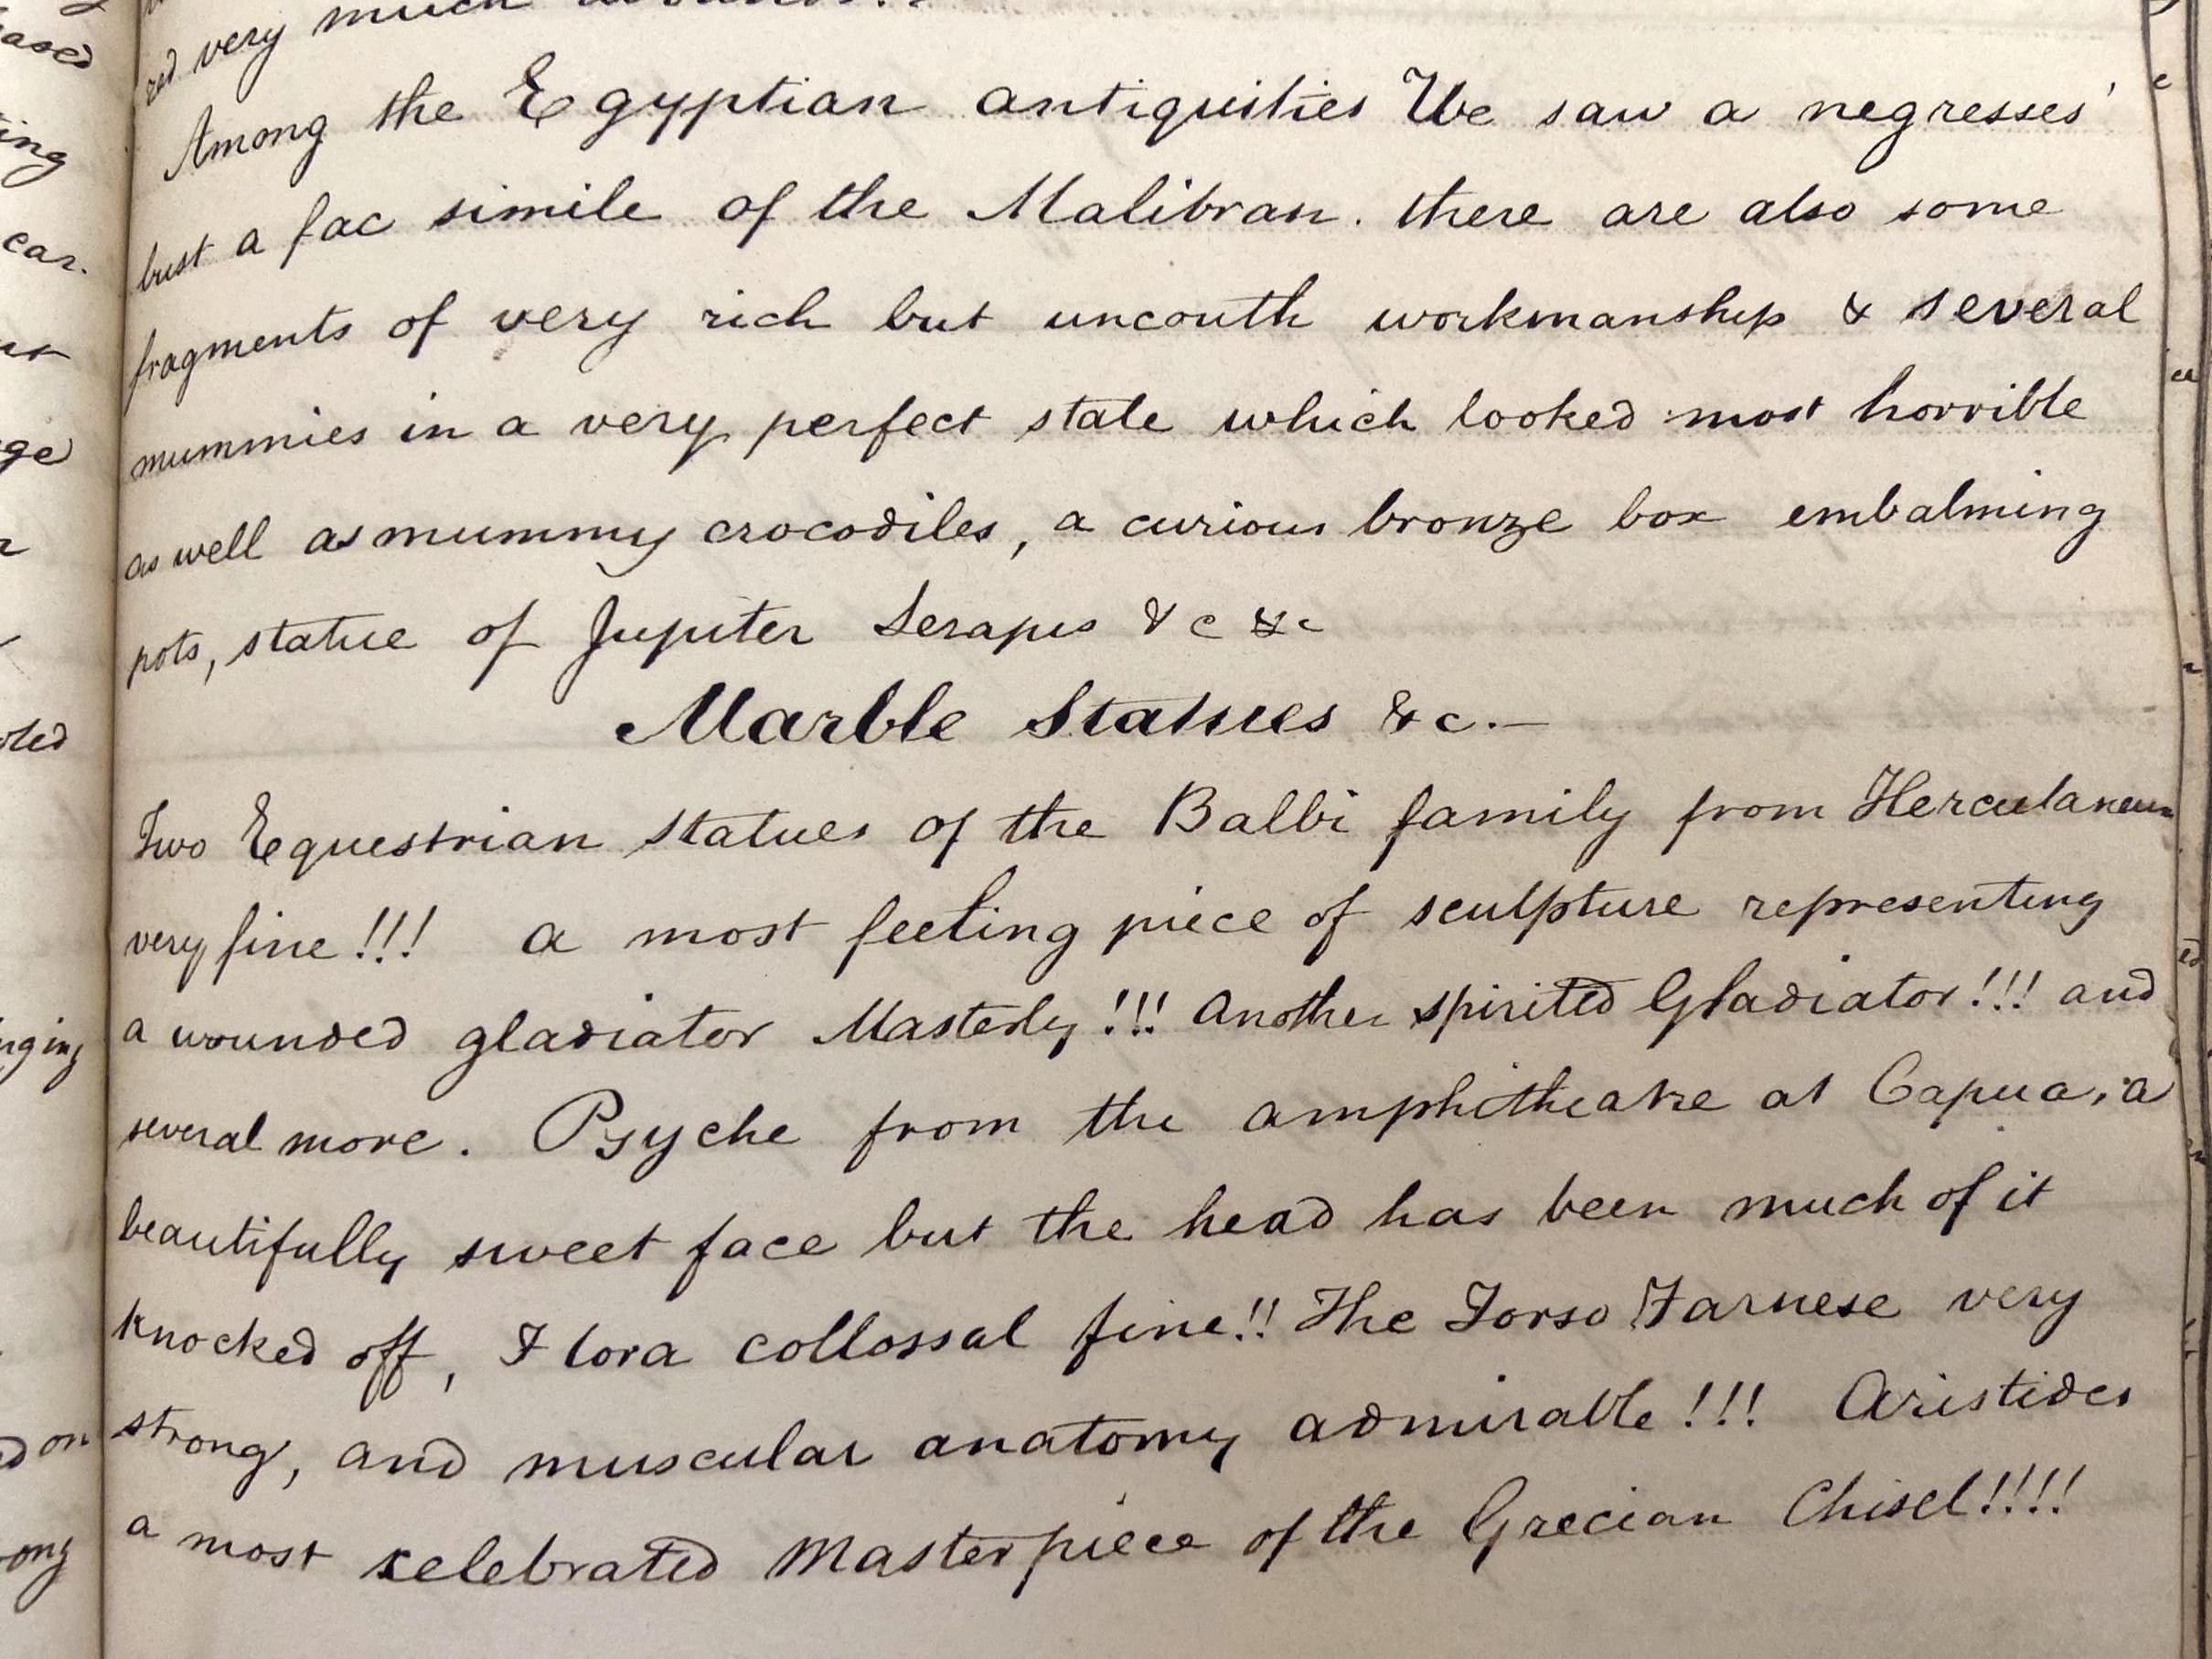 red very much
Among the Egyptian antiquities We saw a negresses'
bust a fac simile of the Malibran. there are also some
fragments of very rich but uncouth workmanship & several
mummies in a very perfect state which looked most horrible
as well as mummy crocodiles, a curious bronze box embalming
pots, statue of Jupiter Serapis &c &c
Marble Statues &c.—
Two Equestrian statues of the Balbi family from Herculaneum
very fine!!! a most feeling piece of sculpture representing
a wounded gladiator Masterly!!! Another spirited Gladiator!!! and
several more. Psyche from the amphitheatre at Capua, a
beautifully sweet face but the head has been much of it
knocked off, Flora collossal fine!! The Torso Farnese very
strong, and muscular anatomy admirable!!! Aristides
a most celebrated Masterpiece of the Grecian Chisel!!!!